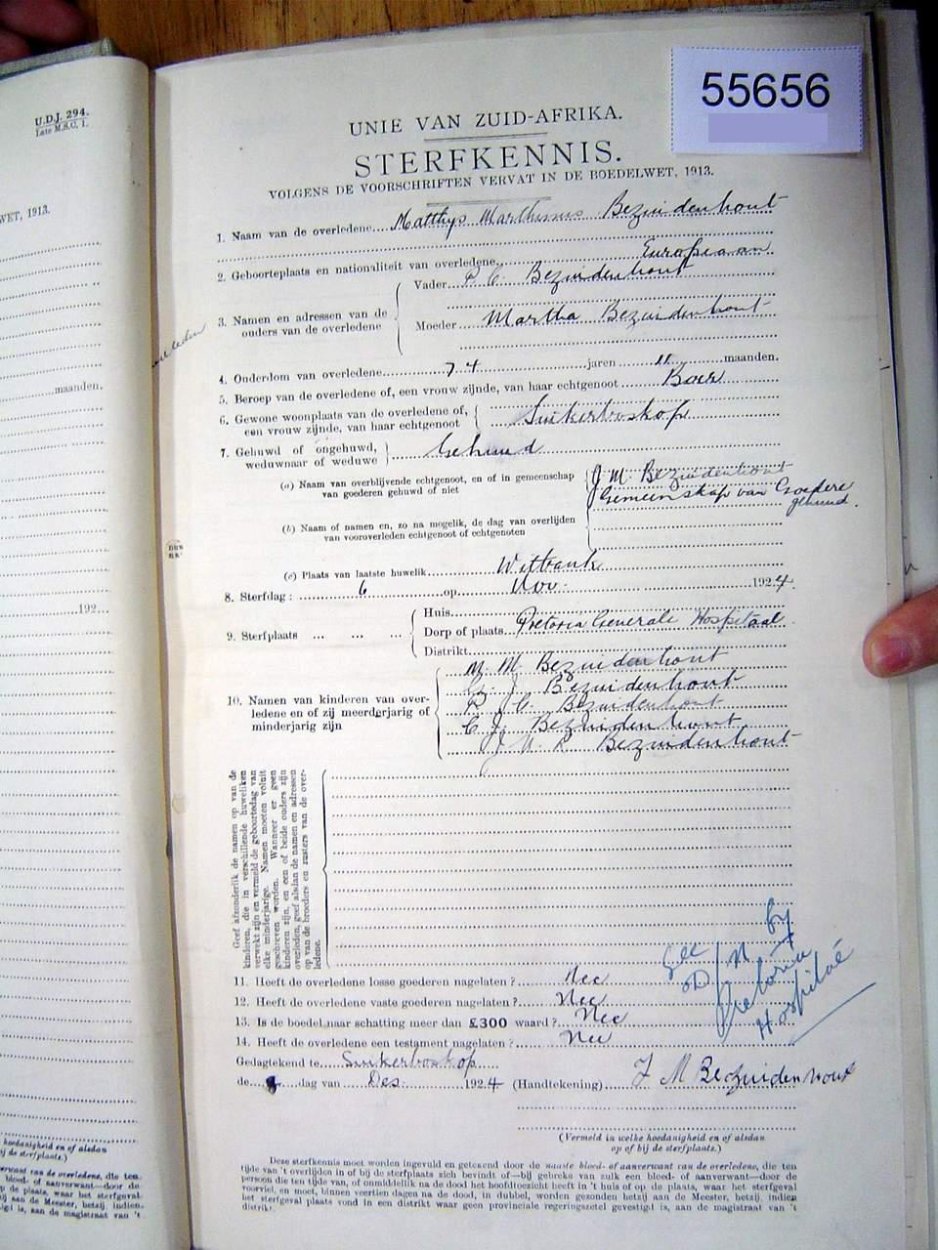 U.D.J. 294.
Late M.S.C. 1.
WET, 1913.
maanden.
192
55656
UNIE VAN ZUID-AFRIKA.
STERFKENNIS.
VOLGENS DE VOORSCHRIFTEN VERVAT IN DE BOEDELWET, 1913.
1. Naam van de overledene Matthys Marthinus Bezuidenhout
2. Geboorteplaats en nationaliteit van overledene Europeaan
3. Namen en adressen van de ouders van de overledene
Vader P C Bezuidenhout
Moeder Martha Bezuidenhout
4. Onderdom van overledene 74 jaren 11 maanden.
5. Beroep van de overledene of, een vrouw zijnde, van haar echtgenoot Boer
6. Gewone woonplaats van de overledene of, een vrouw zijnde, van haar echtgenoot Suikerboskop
7. Gehuwd of ongehuwd, weduwnaar of weduwe Gehuud
(a) Naam van overblijvende echtgenoot, en of in gemeenschap van goederen gehuwd of niet
J M Bezuidenhout
Gemeenskap van Goedere
gehuud.
(b) Naam of namen en, zo na mogelik, de dag van overlijden van vooroverleden echtgenoot of echtgenoten
(c) Plaats van laatste huwelik Witbank
8. Sterfdag: 6 op Nov. 1924
9. Sterfplaats ... ... ...
Huis
Dorp of plaats Pretoria Generale Hospitaal
Distrikt
10. Namen van kinderen van overledene en of zij meerdgrjarig of minderjarig zijn
M. M. Bezuidenhout
J. Bezuidenhout
P J C Bezuidenhout
C J. Bezuidenhout
Bezuidenhout
Geef afzonderlik de namen op van de kinderen, die in verschillende huweliken verwekt zijn en vermeld de geboortedag van elke minderjarige. Namen moeten voluit geschreven worden. Wanneer er geen kinderen zijn, en een of beide ouders zijn overleden, geef alsdan de namen en adressen op van de broeders en zusters van de overledene.
See D/N by
Pretoria
Hospital
11. Heeft de overledene losse goederen nagelaten? Nee
12. Heeft de overledene vaste goederen nagelaten? Nee
13. Is de boedel naar schatting meer dan £300 waard? Nee
14. Heeft de overledene een testament nagelaten? Nee
Gedagtekend te Suikerboskop
de dag van Des. 1924 (Handtekening) J M Bezuidenhout
(Vermeld in welke hoedanigheid en of alsdan
op of bij de sterfplaats.)
Deze sterfkennis moet worden ingevuld en getekend door de naaste bloed- of aanverwant van de overledene, die ten
tijde van 't overlijden in of bij de sterfplaats zich bevindt of—bij gebreke van zulk een bloed- of aanverwant—door de
persoon die ten tijde van, of onmiddellik na de dood het hoofdtoezicht heeft in 't huis of op de plaats, waar het sterfgeval
voorviel, en moet, binnen veertien dagen na de dood, in dubbel, worden gezonden hetzij aan de Meester, hetzij, indien
het sterfgeval plaats vond in een distrikt waar geen provinciale regeringszetel gevestigd is, aan de magistraat van 't
distrikt.